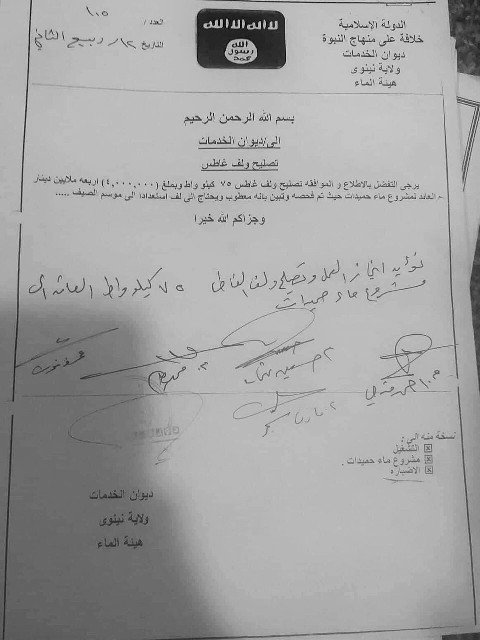 الدولة الاسلامية
خلافة على منهاج النبوة
ديوان الخدمات
ولاية نينوى
هيئة الماء
لا اله الا الله
الله
رسول
محمد
العدد / ١٠٥
التاريخ ١٢ / ربيع الثاني
بسم الله الرحمن الرحيم
الى/ديوان الخدمات
تصليح ولف غاطس
يرجى التفضل بالاطلاع و الموافقه تصليح ولف غاطس ٧٥ كيلو واط وبمبلغ (٤,٠٠٠,٠٠٠) اربعه ملايين دينار
العائد لمشروع ماء حميدات حيث تم فحصه وتبين بانه معطوب ويحتاج الى لف استعدادا الى موسم الصيف .....
وجزاكم الله خيرا
نؤيد انجاز العمل وتصليح ولف الغاطس ٧٥ كيلو واط العائد الى
مشروع ماء حميدات
نسخة منه الى:
التشغيل
مشروع ماء حميدات .
الاضباره
ديوان الخدمات
ولاية نينوى
هيئة الماء